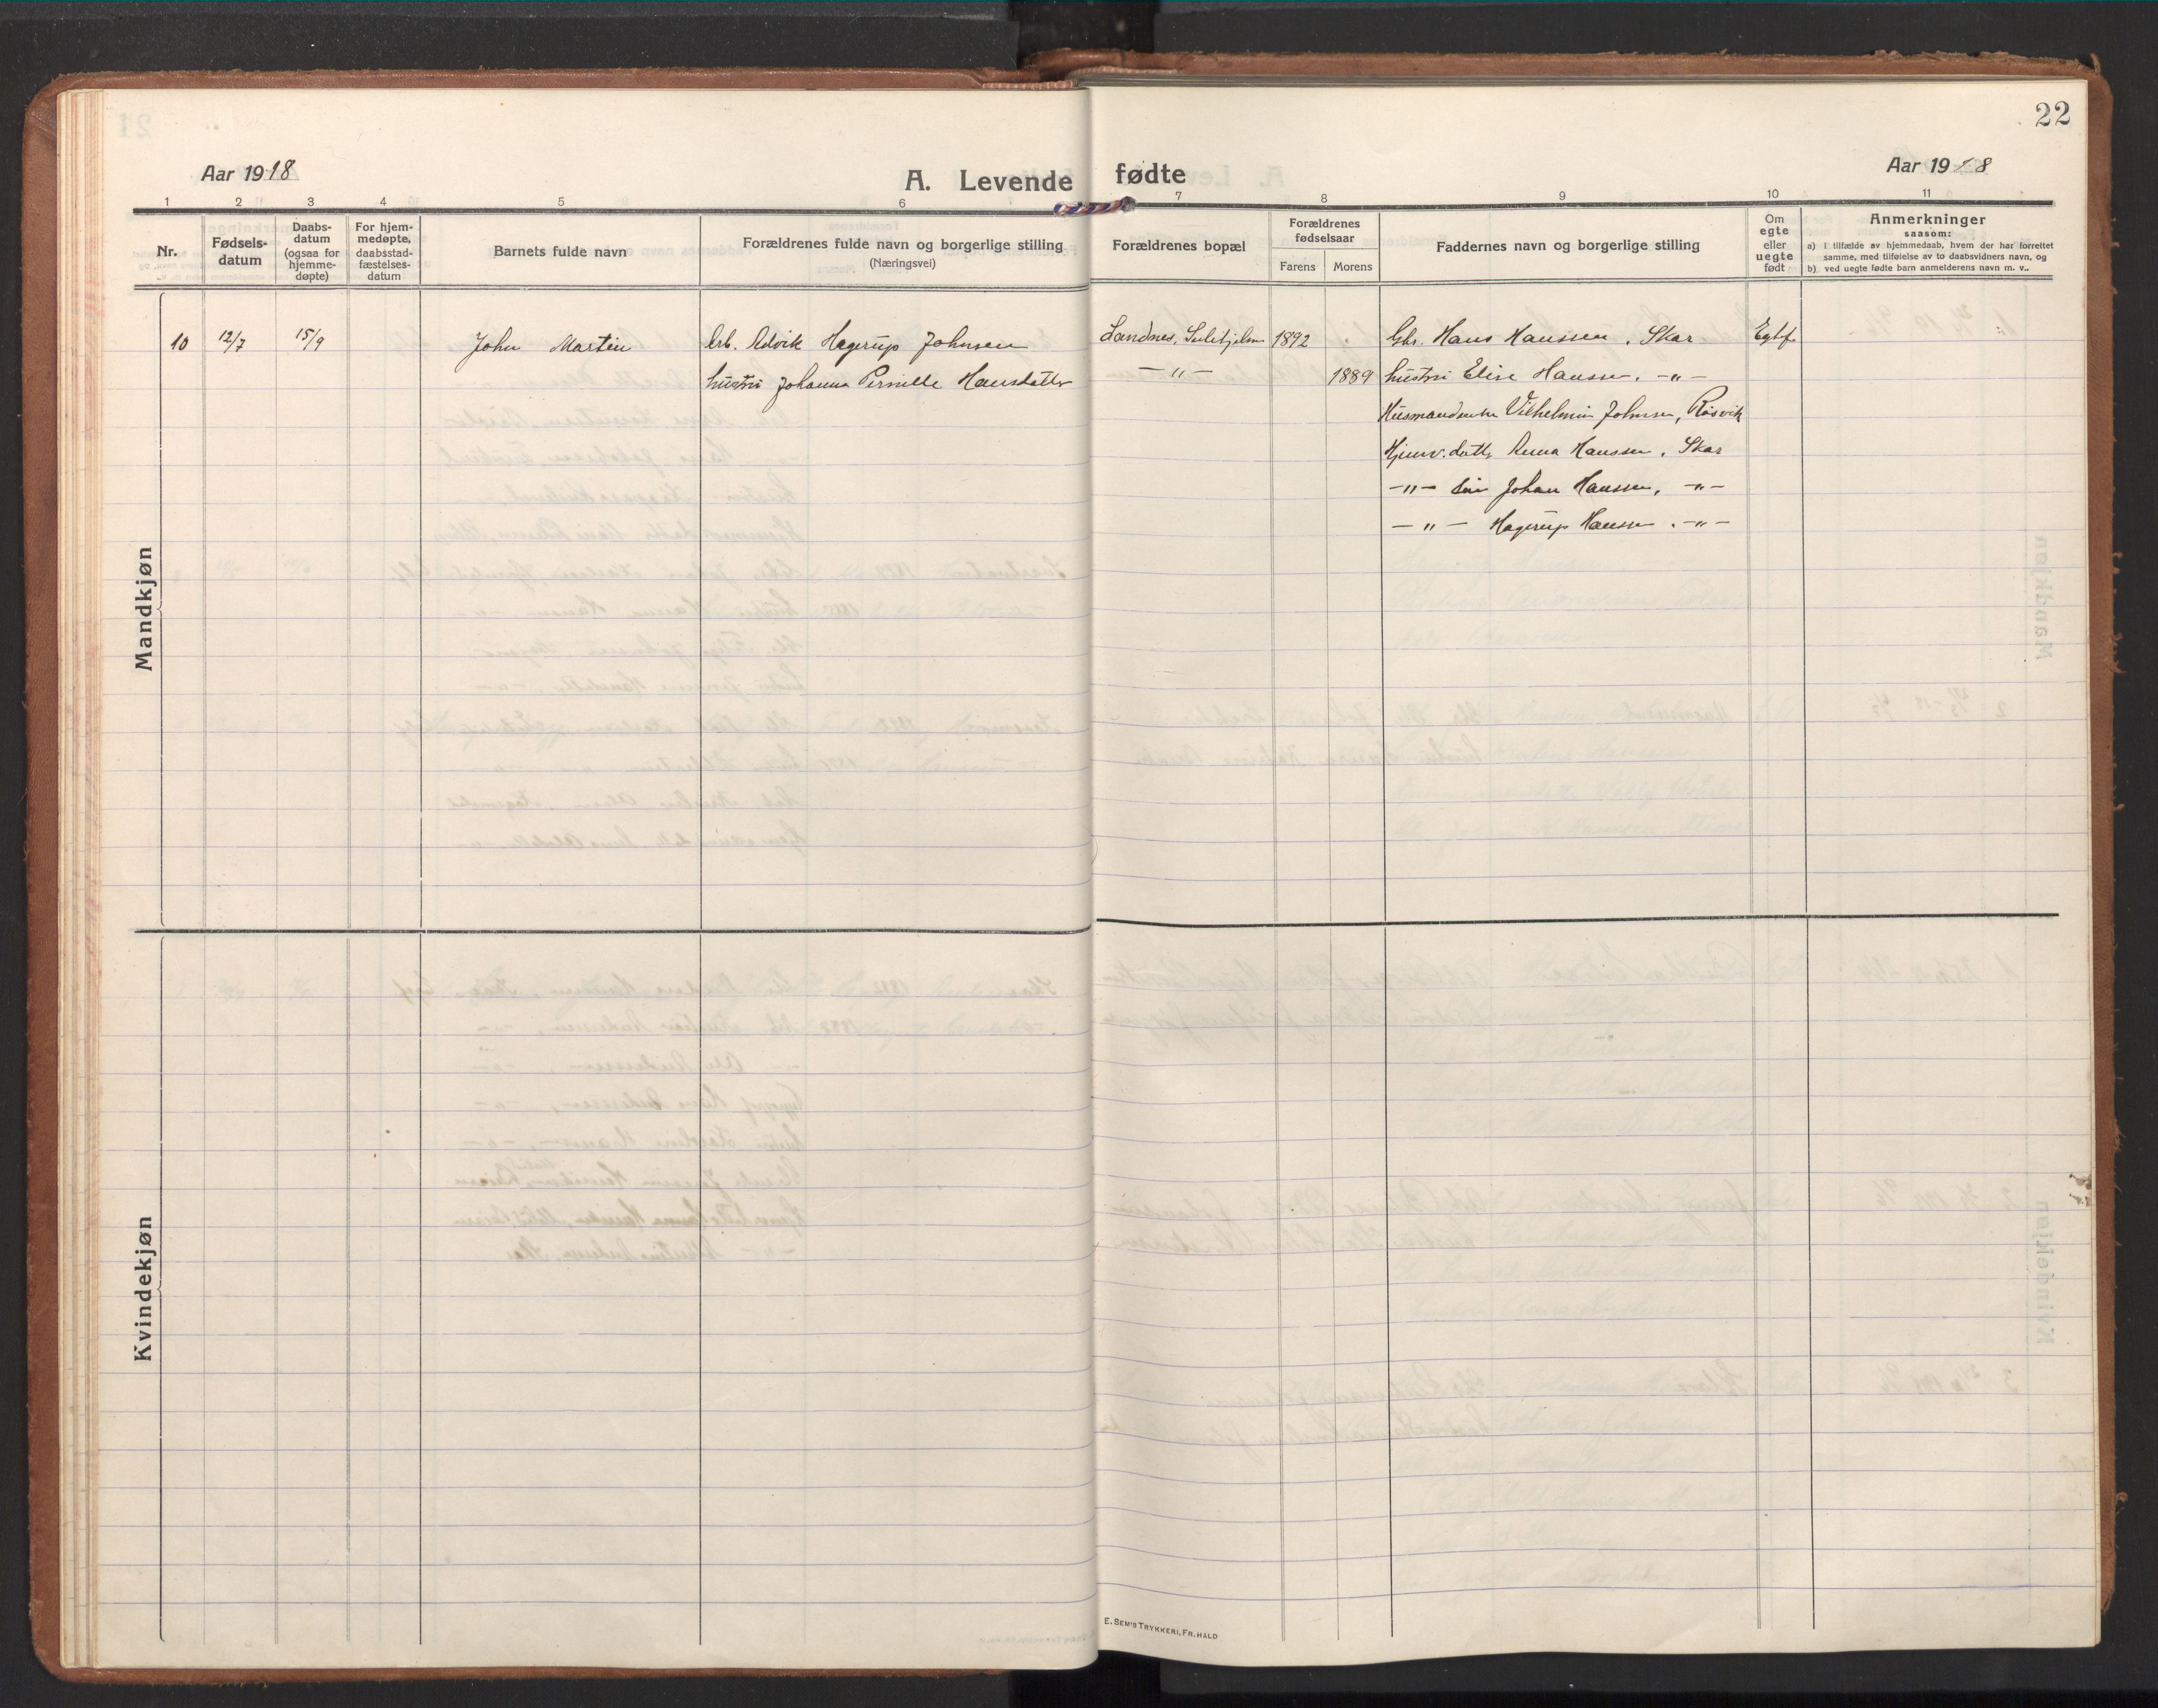 22
Aar 1918
A. Levende fødte
Aar 1918
1 2 3 4 5 6 7 8 9 10 11
Nr.
Fødselsdatum
Daabsdatum (ogsaa for hjemmedøpte)
For hjemmedøpte, daabsstadfæstelsesdatum
Barnets fulde navn
Forældrenes fulde navn og borgerlige stilling
(Næringsvei)
Forældrenes bopæl
Forældrenes fødselsaar
Farens Morens
Faddernes navn og borgerlige stilling
Om egte eller uegte født
Anmerkninger
saasom:
a) I tilfælde av hjemmedaab, hvem der har forrettet
samme, med tilføielse av to daabsvidners navn, og
b) ved uegte fødte barn anmelderens navn m. v..
Mandkjøn
10 12/7 15/9 John Martin Arb. Advik Hagerup Johnsen Sandnes, Sulitjelma 1892 Gbr. Hans Hanssen, Skar Egtf.
hustru Johanna Pernille Hansdatter —"— 1889 hustru Elise Hanssen, —"—
Vilhelmin Johnsen, Røsvik
Hjemv. datter Anna Hanssen, Skar
—"— søn Johan Hanssen, —"—
—"— Hagerup Hanssen, —"—
Kvindekjøn
E. SEM'S TRYKKERI, FR.HALD